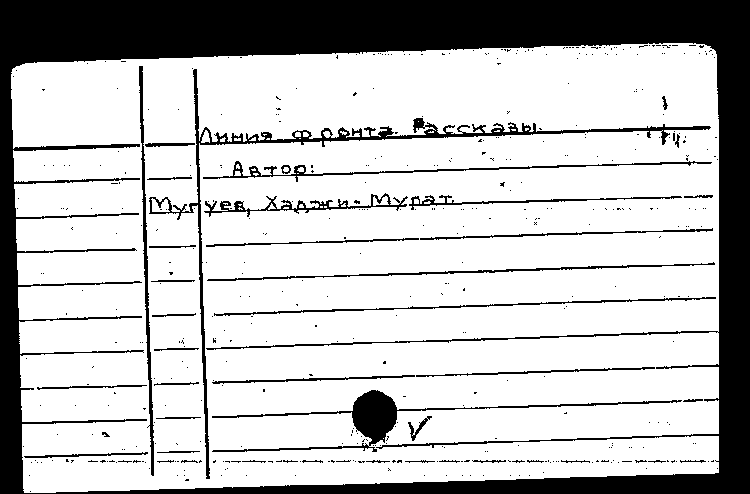 Линия фронта. Рассказы.
Автор:
Мугуев, Хаджи-Мурат.